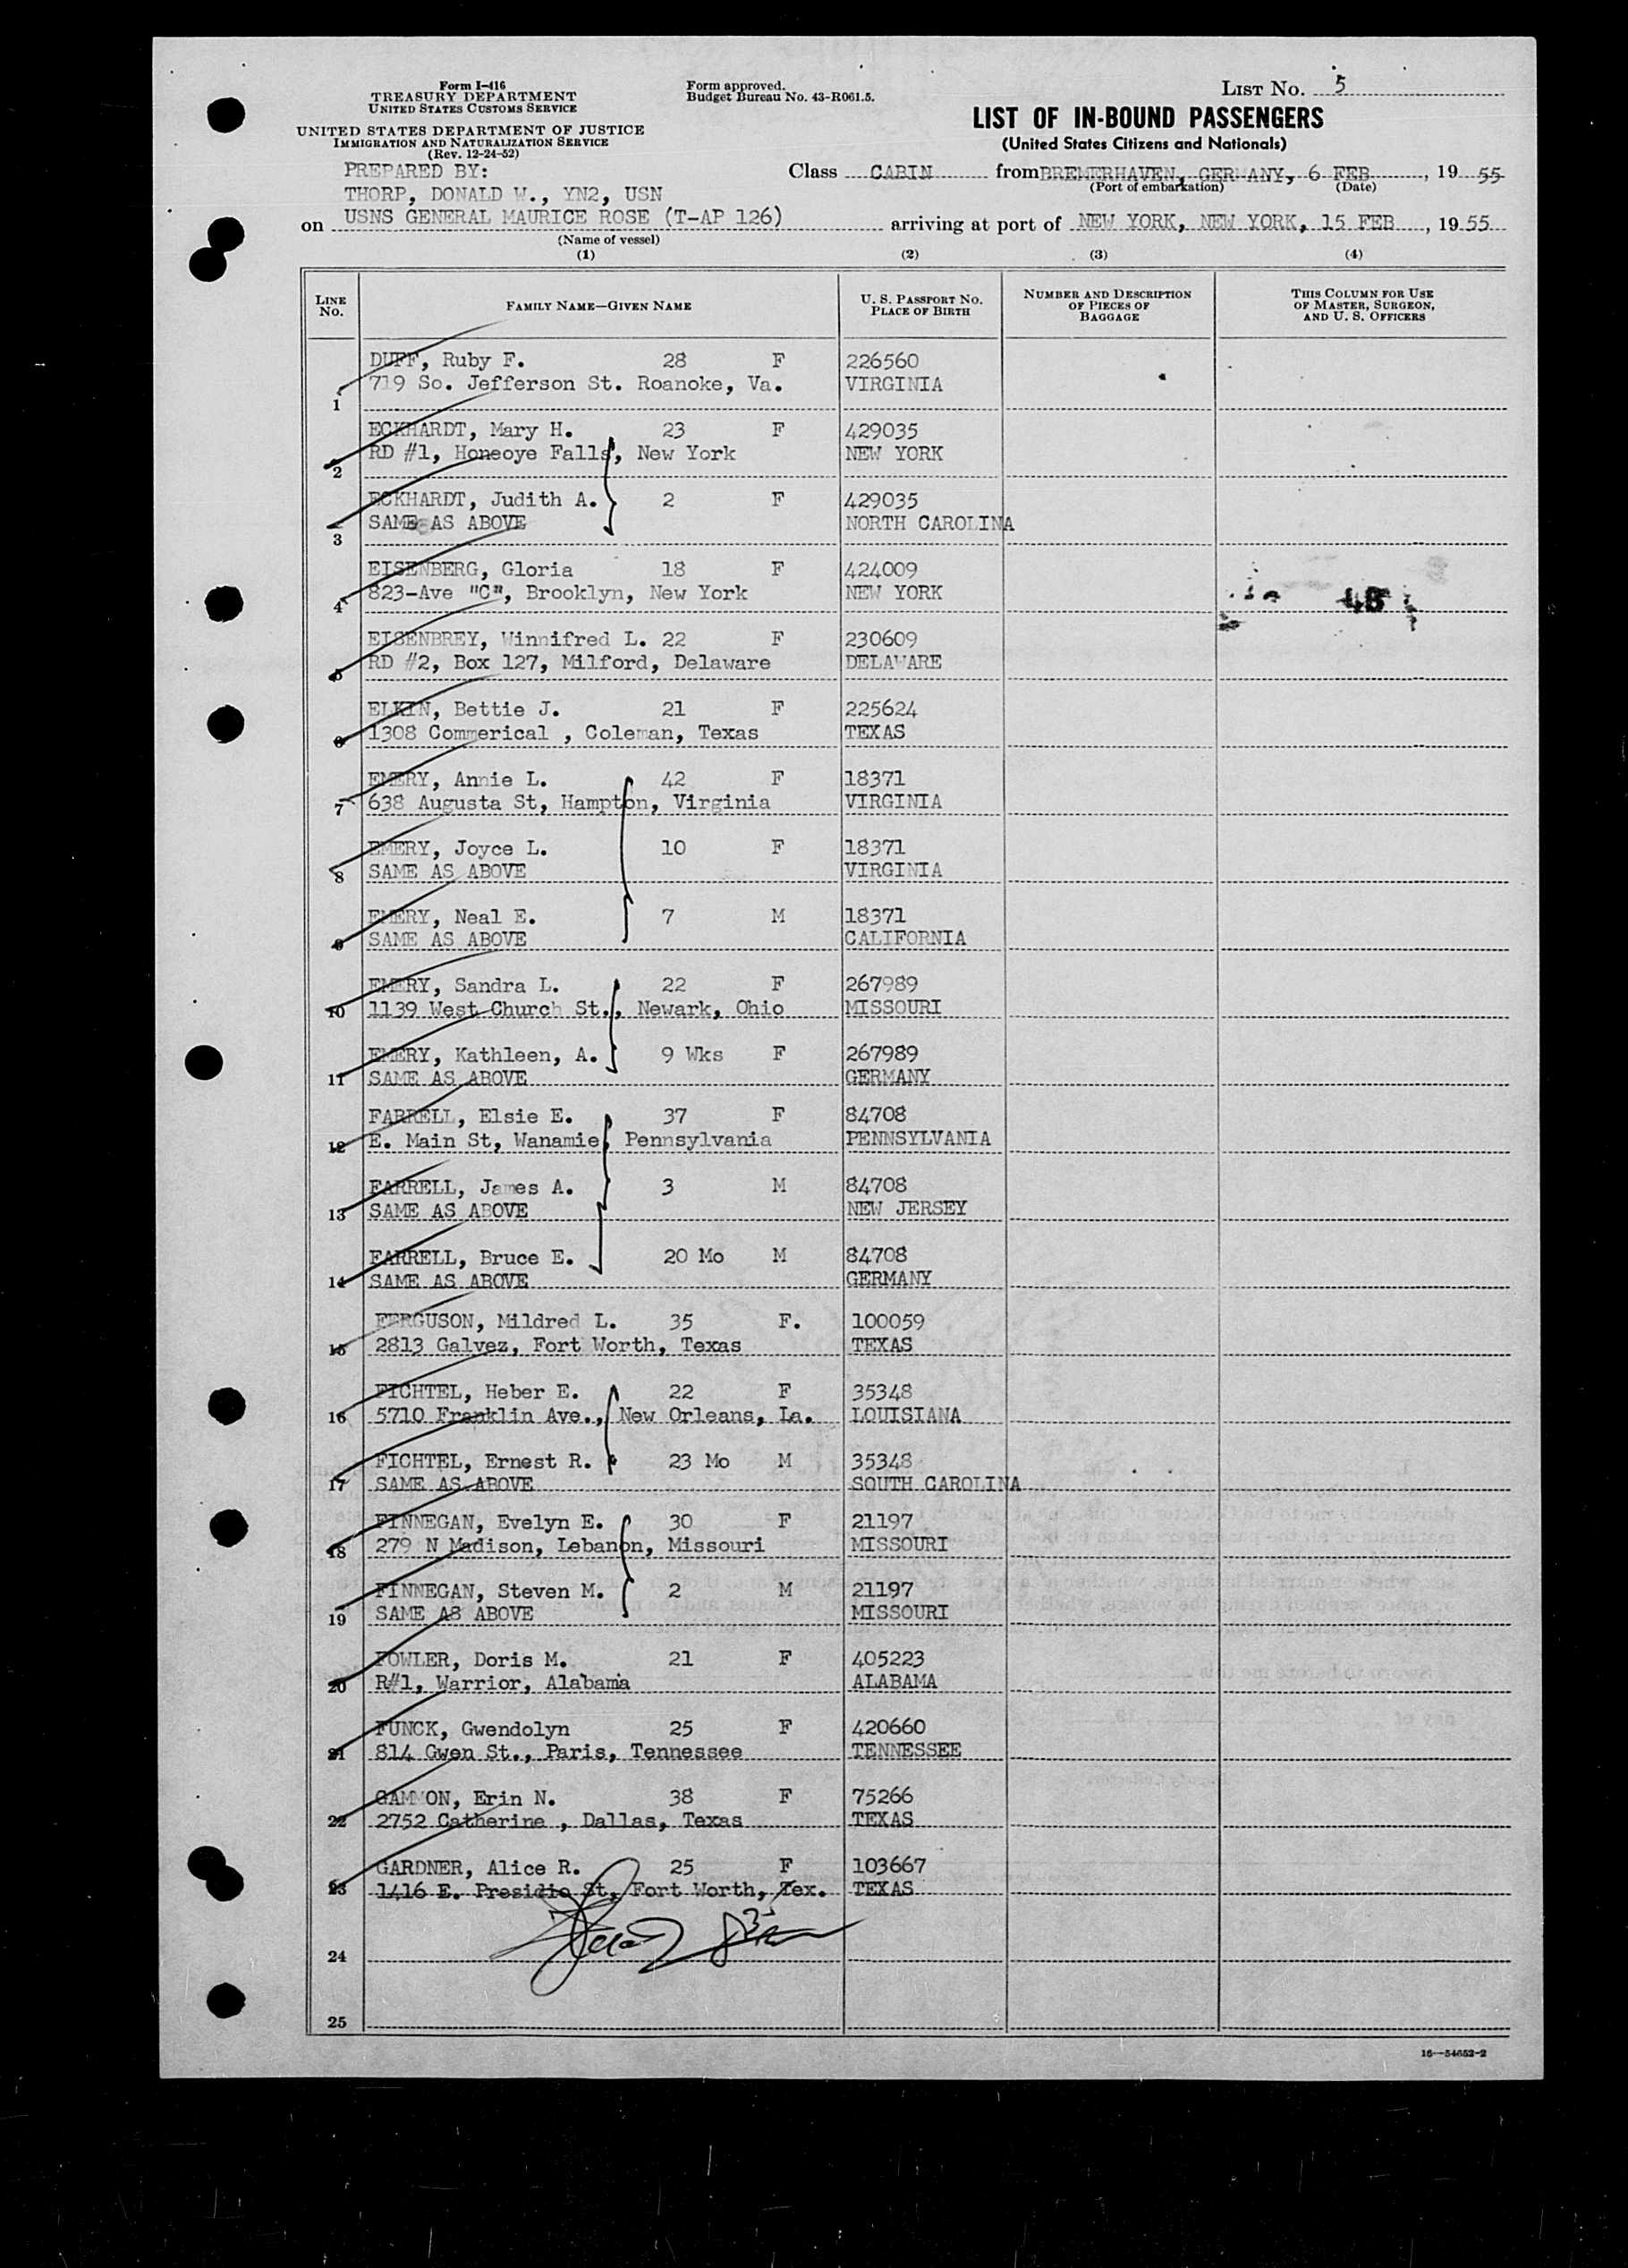 Form I-416
TREASURY DEPARTMENT
UNITED STATES CUSTOMS SERVICE
UNITED STATES DEPARTMENT OF JUSTICE
IMMIGRATION AND NATURALIZATION SERVICE
(Rev. 12-24-52)
Form approved.
Budget Bureau No. 43-R061.5.
LIST No. 5
LIST OF IN-BOUND PASSENGERS
(United States Citizens and Nationals)
PREPARED BY:
THORP, DONALD W., YN2, USN
Class CABIN from BREMERHAVEN, GERMANY, 6 FEB, 19 55
(Port of embarkation) (Date)
on USNS GENERAL MAURICE ROSE (T-AP 126) arriving at port of NEW YORK, NEW YORK, 15 FEB, 19 55
(Name of vessel)
(1) (2) (3) (4)
LINE No. FAMILY NAME—GIVEN NAME U. S. PASSPORT No. PLACE OF BIRTH NUMBER AND DESCRIPTION OF PIECES OF BAGGAGE THIS COLUMN FOR USE OF MASTER, SURGEON, AND U. S. OFFICERS
DUFF, Ruby F. 28 F 226560
1 719 So. Jefferson St. Roanoke, Va. VIRGINIA
ECKHARDT, Mary H. 23 F 429035
2 RD #1, Honeoye Falls, New York NEW YORK
ECKHARDT, Judith A. 2 F 429035
3 SAME AS ABOVE NORTH CAROLINA
EISENBERG, Gloria 18 F 424009
4 823-Ave "C", Brooklyn, New York NEW YORK 48
EISENBREY, Winnifred L. 22 F 230609
5 RD #2, Box 127, Milford, Delaware DELAWARE
ELKIN, Bettie J. 21 F 225624
6 1308 Commerical , Coleman, Texas TEXAS
EMERY, Annie L. 42 F 18371
7 638 Augusta St, Hampton, Virginia VIRGINIA
EMERY, Joyce L. 10 F 18371
8 SAME AS ABOVE VIRGINIA
EMERY, Neal E. 7 M 18371
9 SAME AS ABOVE CALIFORNIA
EMERY, Sandra L. 22 F 267989
10 1139 West Church St., Newark, Ohio MISSOURI
EMERY, Kathleen, A. 9 Wks F 267989
11 SAME AS ABOVE GERMANY
FARRELL, Elsie E. 37 F 84708
12 E. Main St, Wanamie, Pennsylvania PENNSYLVANIA
FARRELL, James A. 3 M 84708
13 SAME AS ABOVE NEW JERSEY
FARRELL, Bruce E. 20 Mo M 84708
14 SAME AS ABOVE GERMANY
FERGUSON, Mildred L. 35 F. 100059
15 2813 Galvez, Fort Worth, Texas TEXAS
FICHTEL, Heber E. 22 F 35348
16 5710 Franklin Ave., New Orleans, La. LOUISIANA
FICHTEL, Ernest R. 23 Mo M 35348
17 SAME AS ABOVE SOUTH CAROLINA
FINNEGAN, Evelyn E. 30 F 21197
18 279 N Madison, Lebanon, Missouri MISSOURI
FINNEGAN, Steven M. 2 M 21197
19 SAME AS ABOVE MISSOURI
FOWLER, Doris M. 21 F 405223
20 R#1, Warrior, Alabama ALABAMA
FUNCK, Gwendolyn 25 F 420660
21 814 Gwen St., Paris, Tennessee TENNESSEE
GAMMON, Erin N. 38 F 75266
22 2752 Catherine , Dallas, Texas TEXAS
GARDNER, Alice R. 25 F 103667
23 1416 E. Presidio St, Fort Worth, Tex. TEXAS
24
25
16—54652-2